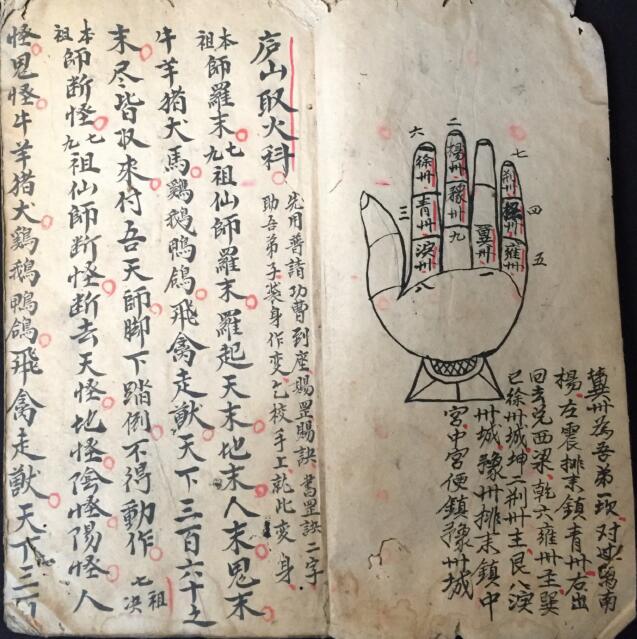 七
荆州
四
雍州
五
冀州
一
二
楊州
豫州
九
六
徐州
三
青州
演州
八
冀州為吾第一坎对过陽南
楊左震排末鎮青州右出
回去兑西梁乾六雍州主巽
已徐州城坤二荆州主艮八演
州城豫州排末鎮中
宮中宮便鎮豫州城
庐山取火科
先用普請功曹到座賜罡賜訣罡訣二字
助吾弟子身作变乞手上此变身
本祖師羅末七九祖仙師羅末羅起天末地末人末鬼末
牛羊猪犬馬鷄鵝鴨鴿飛禽走獸天下三百六十之
末尽皆収來付吾天師脚下踏倒不得動作七祖决
本祖師断怪七九祖仙師断怪断去天怪地怪陰怪陽怪人
怪鬼怪牛羊猪犬鷄鵝鴨鴿飛禽走獸天下三百